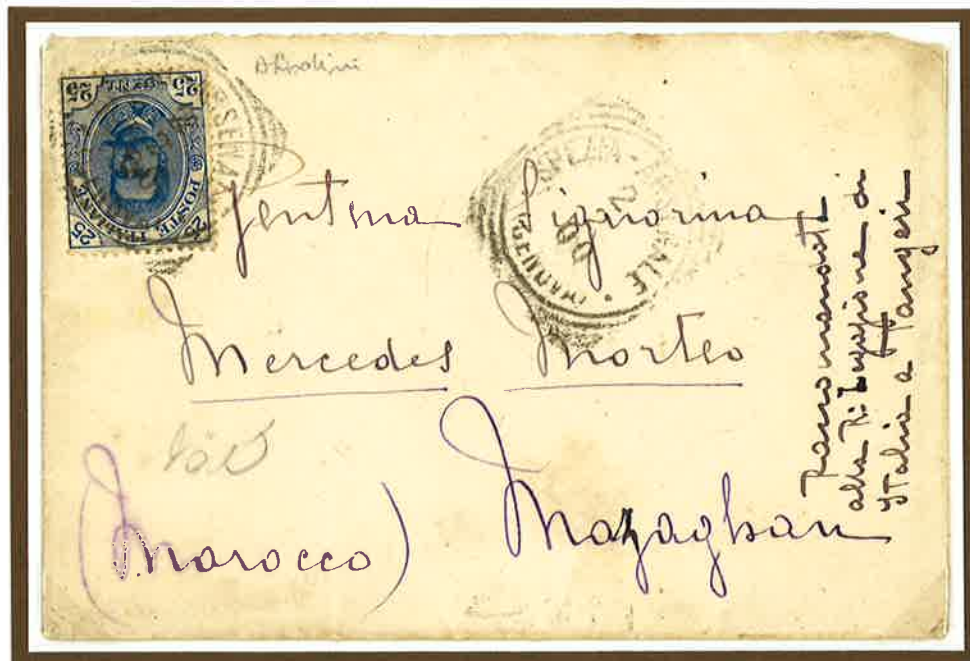 25 CENT. 25
POSTE ITALIANE
25 25
Gentma Signorina
Mercedes Morteo
(Marocco) Mazaghan
Raccomandata
alla R. Legazione di
Italia a Tangeri